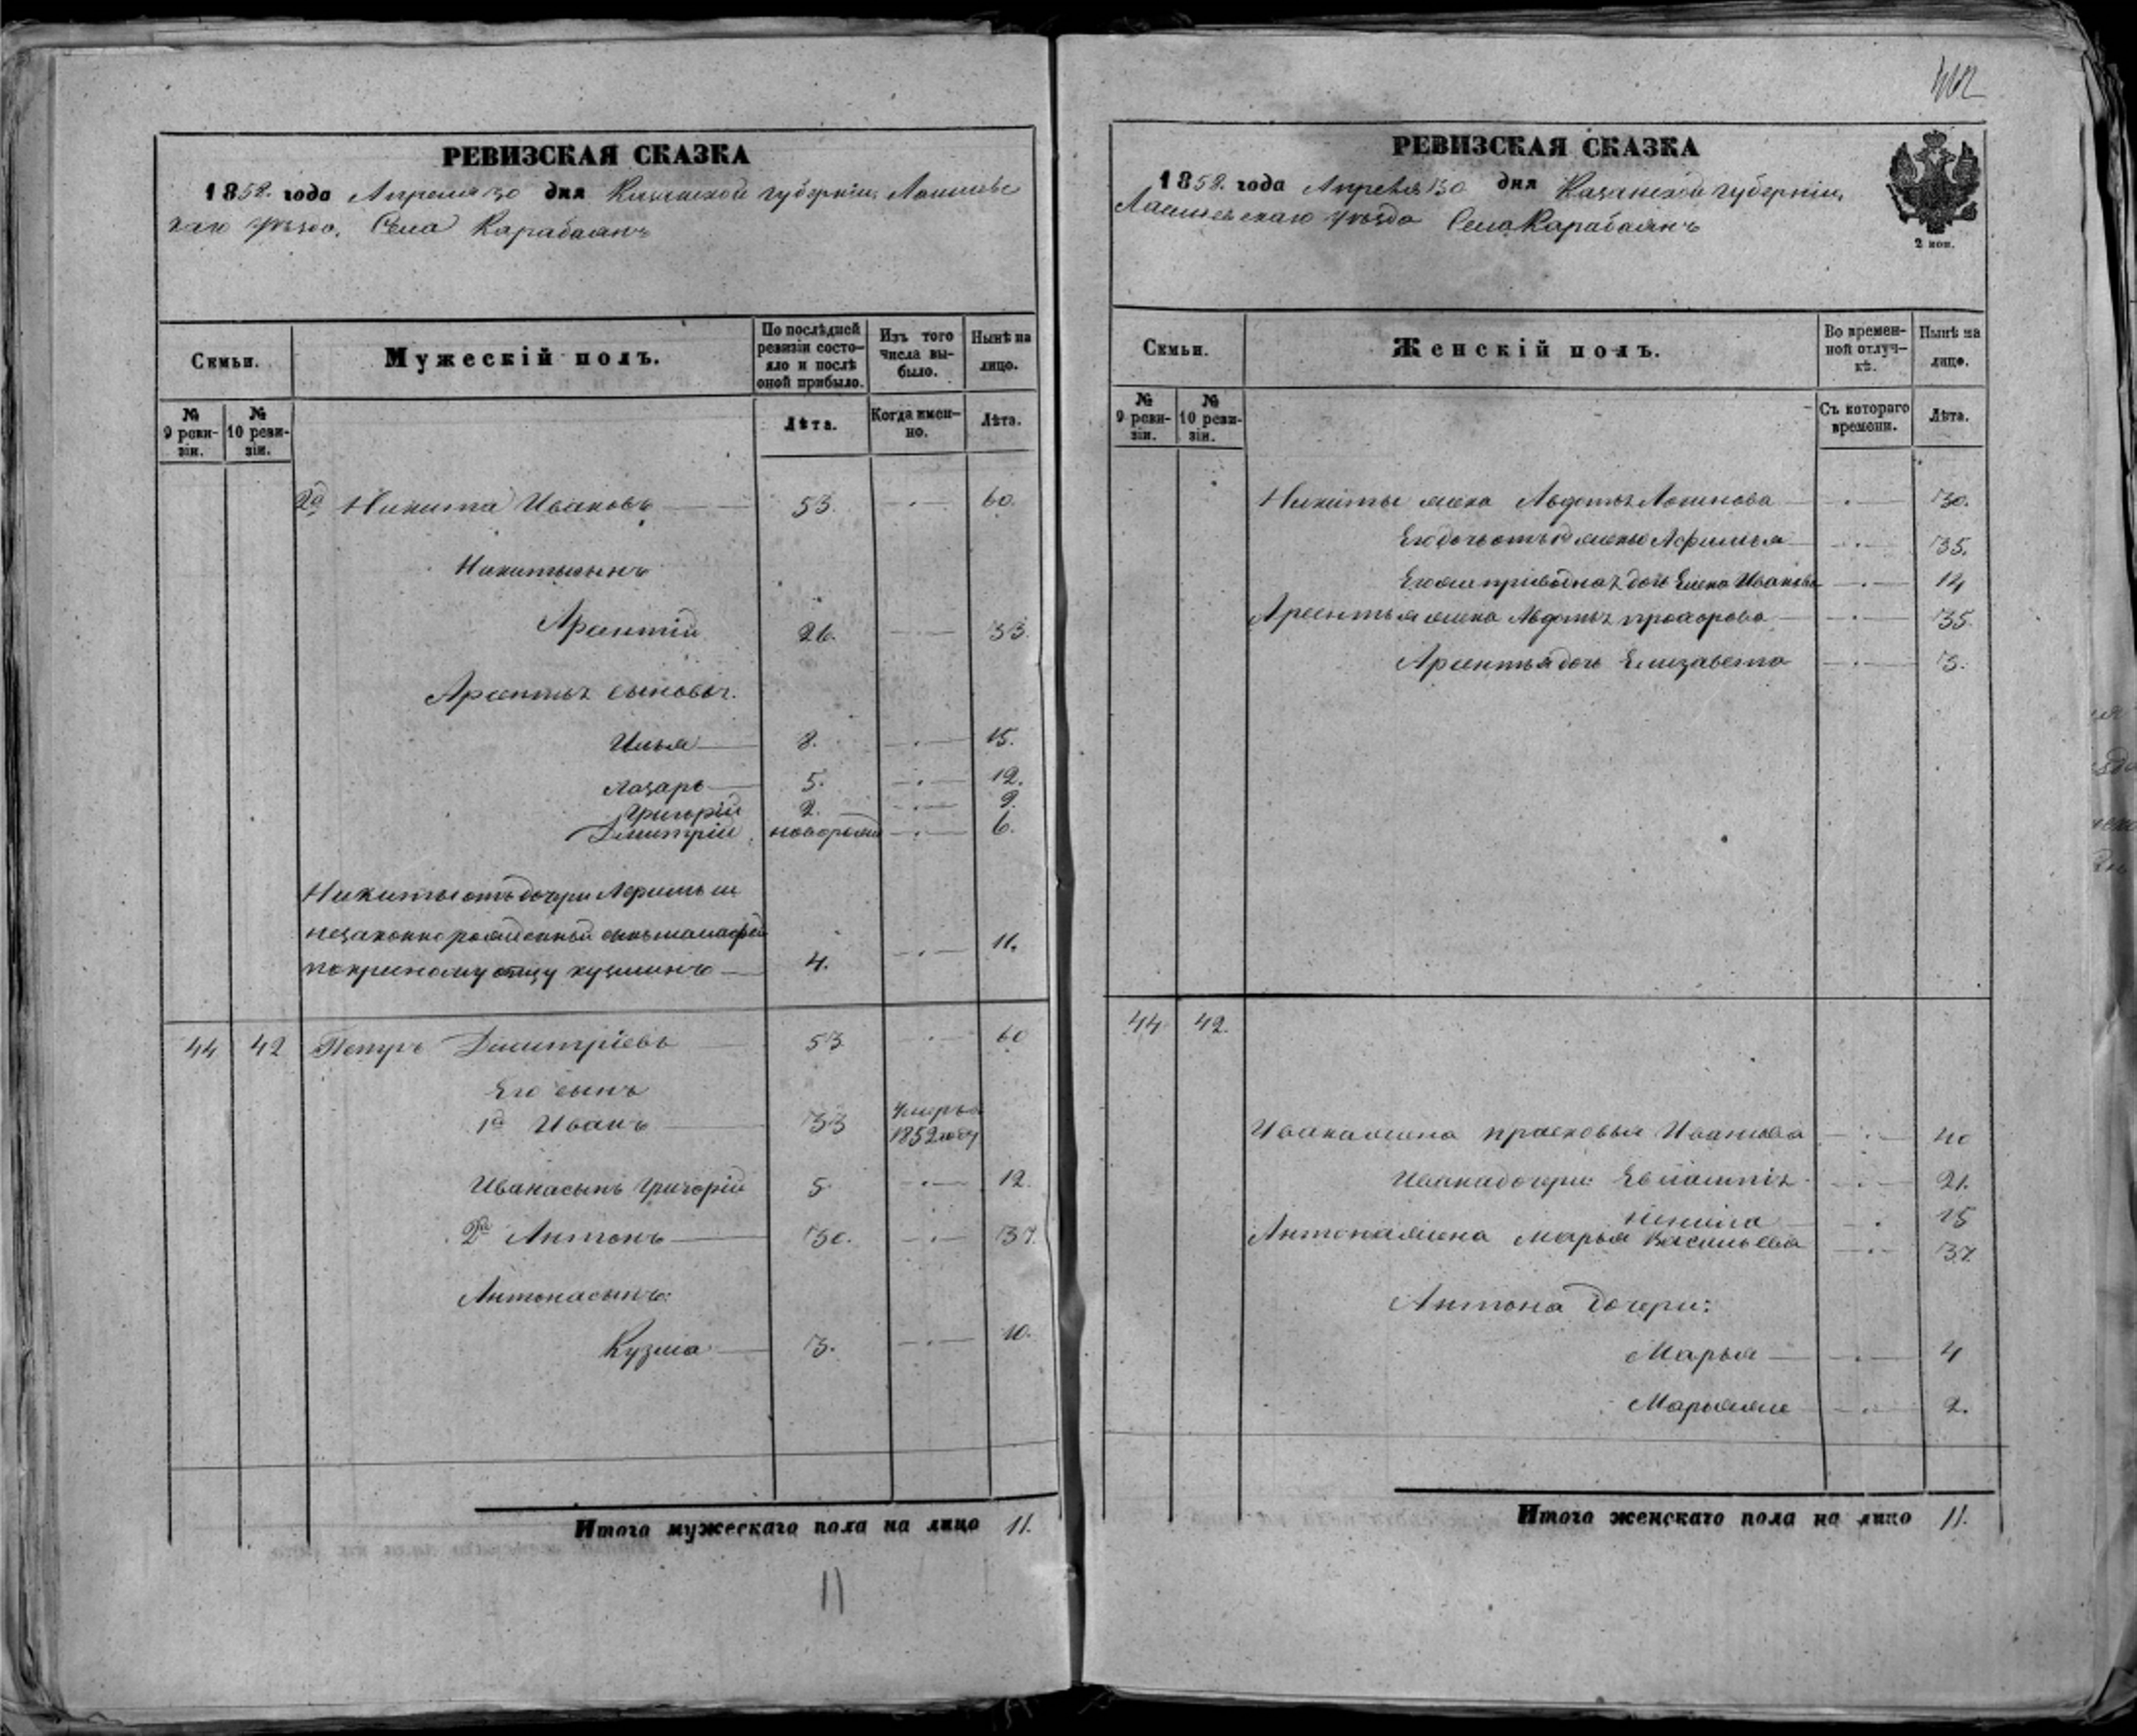 РЕВИЗСКАЯ СКАЗКА
1858. года Апреля 30 дня Казанской губернiи, Лаишевс
каго уѣзда, Села Карабаянъ
Семьи.
Мужескiй полъ.
По послѣдней ревизiи состояло и послѣ оной прибыло.
Изъ того числа выбыло.
Нынѣ на лицо.
№ 9 ревизiи.
№ 10 ревизiи.
Лѣта.
Когда именно.
Лѣта.
2й Никита Ивановъ 53. 60.
Никиты сынъ
Арсентiй 26. 33.
Арсентья сыновья.
Илья 8. 15.
Лазарь 5. 12.
Григорiй 2. 9.
Дмитрiй новорожд 6.
Никиты отъ дочери Афимьи
незаконнорожденный сынъ
по крестному отцу кузминъ 4. 11.
44 42 Петръ Димитрiевъ 53 60
Его сынъ
1й Иванъ 33 Умеръ в 1852 году
Ивана сынъ Григорiй 5. 12.
2й Антонъ 30. 37.
Антона сынъ:
Кузма 3. 10.
Итого мужескаго пола на лицо 11.
11
РЕВИЗСКАЯ СКАЗКА
1858. года Апреля 30 дня Казанской губернiи,
Лаишевскаго уѣзда Села Карабаянъ
2 коп.
Семьи.
Женскiй полъ.
Во временной отлучкѣ.
Нынѣ на лицо.
№ 9 ревизiи.
№ 10 ревизiи.
Съ котораго времени.
Лѣта.
Никиты жена Авдотья Логинова 30.
Его дочь отъ 1й жены Афимья 35.
Его же приводная дочь Елена Иванова 14
Арсентья жена Авдотья прохорова 35.
Арсентья дочь Елизавета 3.
44 42.
Ивана жена прасковья Иванова 40
Ивана дочери: 21.
15
Антона жена Марья Васильева 37.
Антона дочери:
Марья 4
2.
Итого женскаго пола на лицо 11.